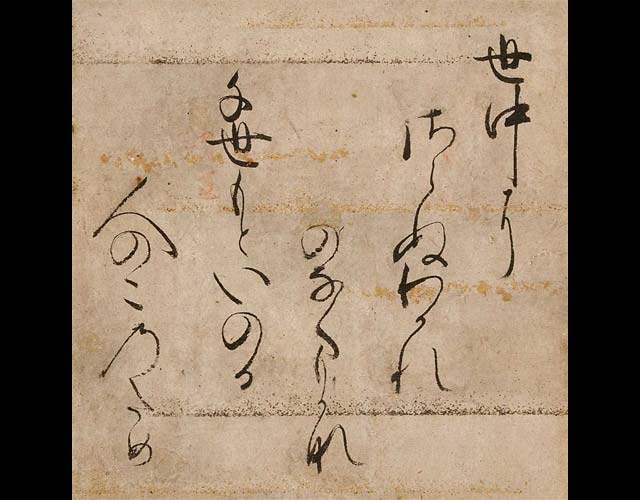 世中に
さらぬわかれ
のなくもかな
千世もといのる
人のこのため